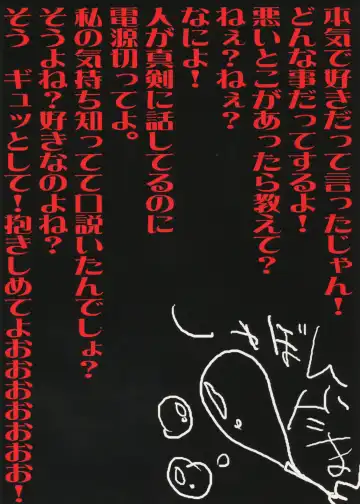 本気で好きだって言ったじゃん！
どんな事だってするよ！
悪いとこがあったら教えて？
ねぇ？ねぇ？
なによ！
人が真剣に話してるのに
電源切ってよ。
私の気持ち知ってて口説いたんでしょ？
そうよね？好きなのよね？
そう　ギュッとして！抱きしめてよおおおおおおおお！